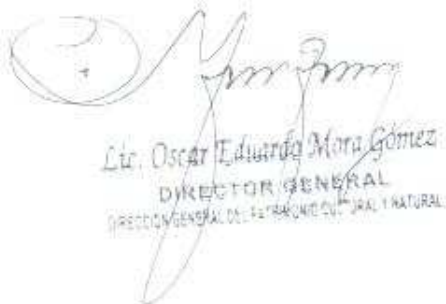 Lic. Oscar Eduardo Mora Gómez
DIRECTOR GENERAL
DIRECCION GENERAL DEL PATRIMONIO CULTURAL Y NATURAL